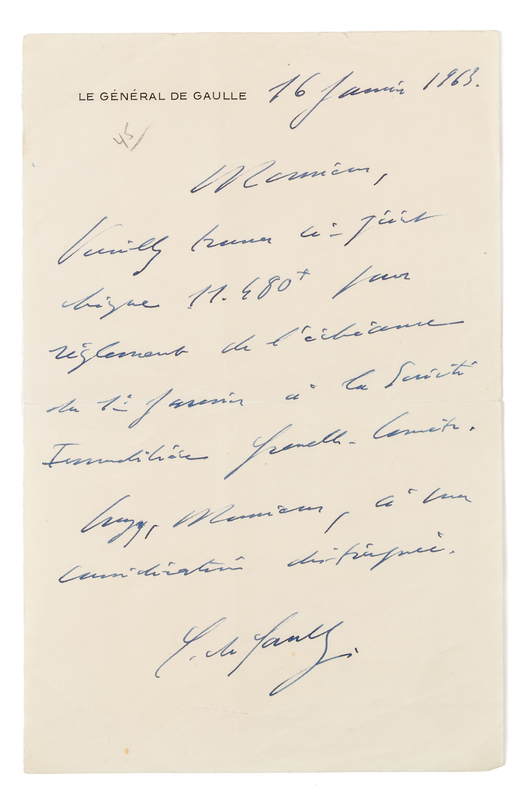 LE GÉNÉRAL DE GAULLE 16 Janvier 1963.
45
Monsieur,
Veuillez trouver ci-joint
chèque 11.480+ pour
règlement de l'échéance
du 1er Janvier à la Société
Immobilière Grenelle-
Croyez, Monsieur, à ma
considération distinguée.
C. de Gaulle.